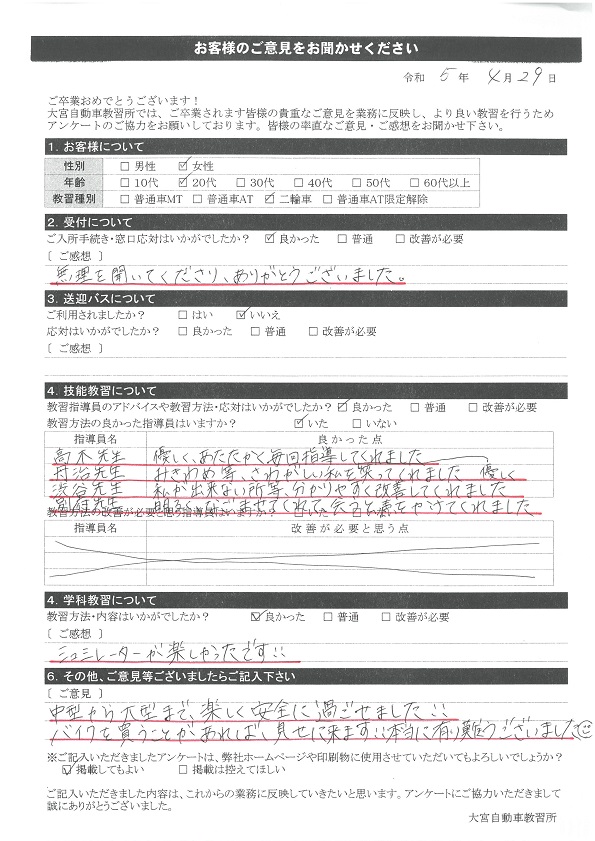 お客様のご意見をお聞かせください
令和 5 年 4 月 29 日
ご卒業おめでとうございます！
大宮自動車教習所では、ご卒業されます皆様の貴重なご意見を業務に反映し、より良い教習を行うため
アンケートのご協力をお願いしております。皆様の率直なご意見・ご感想をお聞かせ下さい。
1. お客様について
性別 □ 男性 ☑ 女性
年齢 □ 10代 ☑ 20代 □ 30代 □ 40代 □ 50代 □ 60代以上
教習種別 □ 普通車MT □ 普通車AT ☑ 二輪車 □ 普通車AT限定解除
2. 受付について
ご入所手続き・窓口応対はいかがでしたか？ ☑ 良かった □ 普通 □ 改善が必要
［ ご感想 ］
無理を聞いてくださり、ありがとうございました。
3. 送迎バスについて
ご利用されましたか？ □ はい ☑ いいえ
応対はいかがでしたか？ □ 良かった □ 普通 □ 改善が必要
［ ご感想 ］
4. 技能教習について
教習指導員のアドバイスや教習方法・応対はいかがでしたか？ ☑ 良かった □ 普通 □ 改善が必要
教習方法の良かった指導員はいますか？ ☑ いた □ いない
指導員名 良かった点
高木先生 優しく、あたたかく毎回指導してくれました
先生 みきわめ等、さわがしい私を笑ってくれました 優しく
渋谷先生 私が出来ない所等、分かりやすく改善してくれました
先生 明るく くれたり、声をかけてくれました
教習方法の改善が必要と思う指導員はいますか？ □ いた □ いない
指導員名 改善が必要と思う点
4. 学科教習について
教習方法・内容はいかがでしたか？ ☑ 良かった □ 普通 □ 改善が必要
［ ご感想 ］
シュミレーターが楽しかったです!!
6. その他、ご意見等ございましたらご記入下さい
［ ご意見 ］
中型から大型まで、楽しく安全に過ごせました!!
バイクを買うことがあれば、見せに来ます!!本当に有り難うございました
※ご記入いただきましたアンケートは、弊社ホームページや印刷物に使用させていただいてもよろしいでしょうか？
☑ 掲載してもよい □ 掲載は控えてほしい
ご記入いただきました内容は、これからの業務に反映していきたいと思います。アンケートにご協力いただきまして
誠にありがとうございました。
大宮自動車教習所